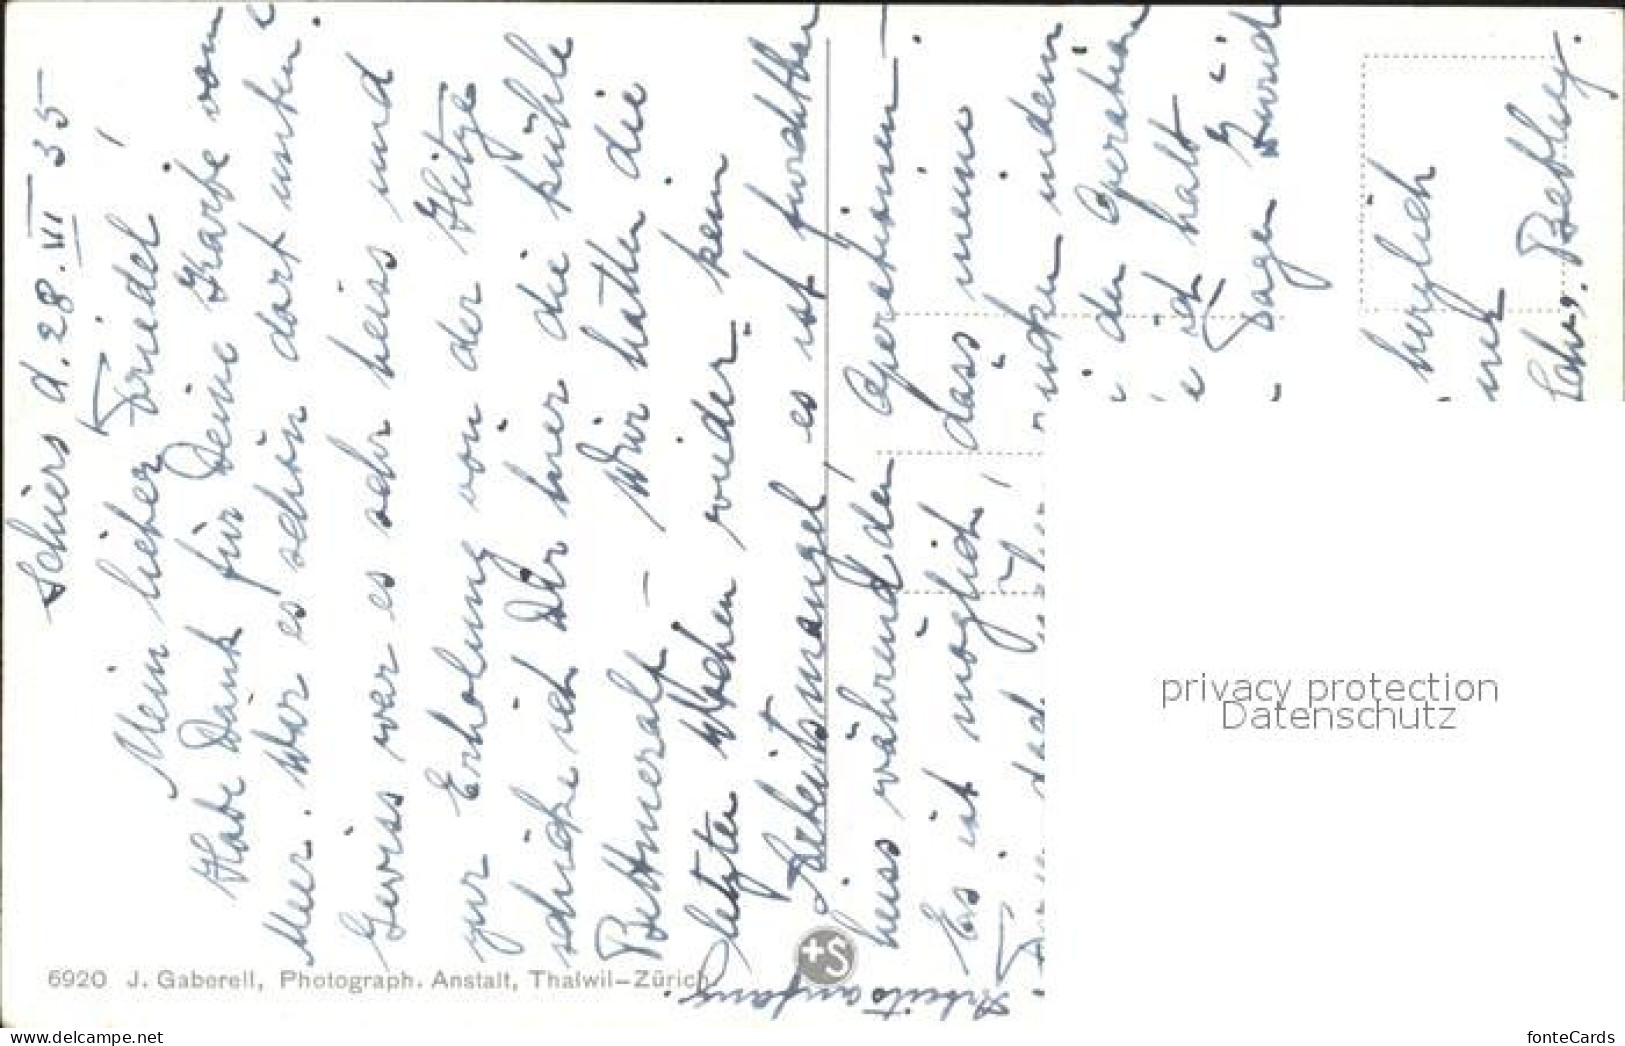 Schiers d. 28. VII 35
Mein lieber Friedel!
Habe Dank für Deine Karte vom
Meer. War es schön dort unten?
Gewiss war es sehr heiss und
zur Erholung von der Hitze
schicke ich Dir hier die kühle
Bettmeralp – Wir hatten die
letzten Wochen wieder kein
Arbeitsmangel, es ist furchtbar
heiss während den Operationen.
Es ist möglich, dass meine
indem
der Operation
ich halt
Sagen
herzlich
Schw. Bethly.
Arbeitsanfang.
6920 J. Gaberell, Photograph. Anstalt, Thalwil–Zürich
+S
privacy protection
Datenschutz
my-seller.com
fonteCards